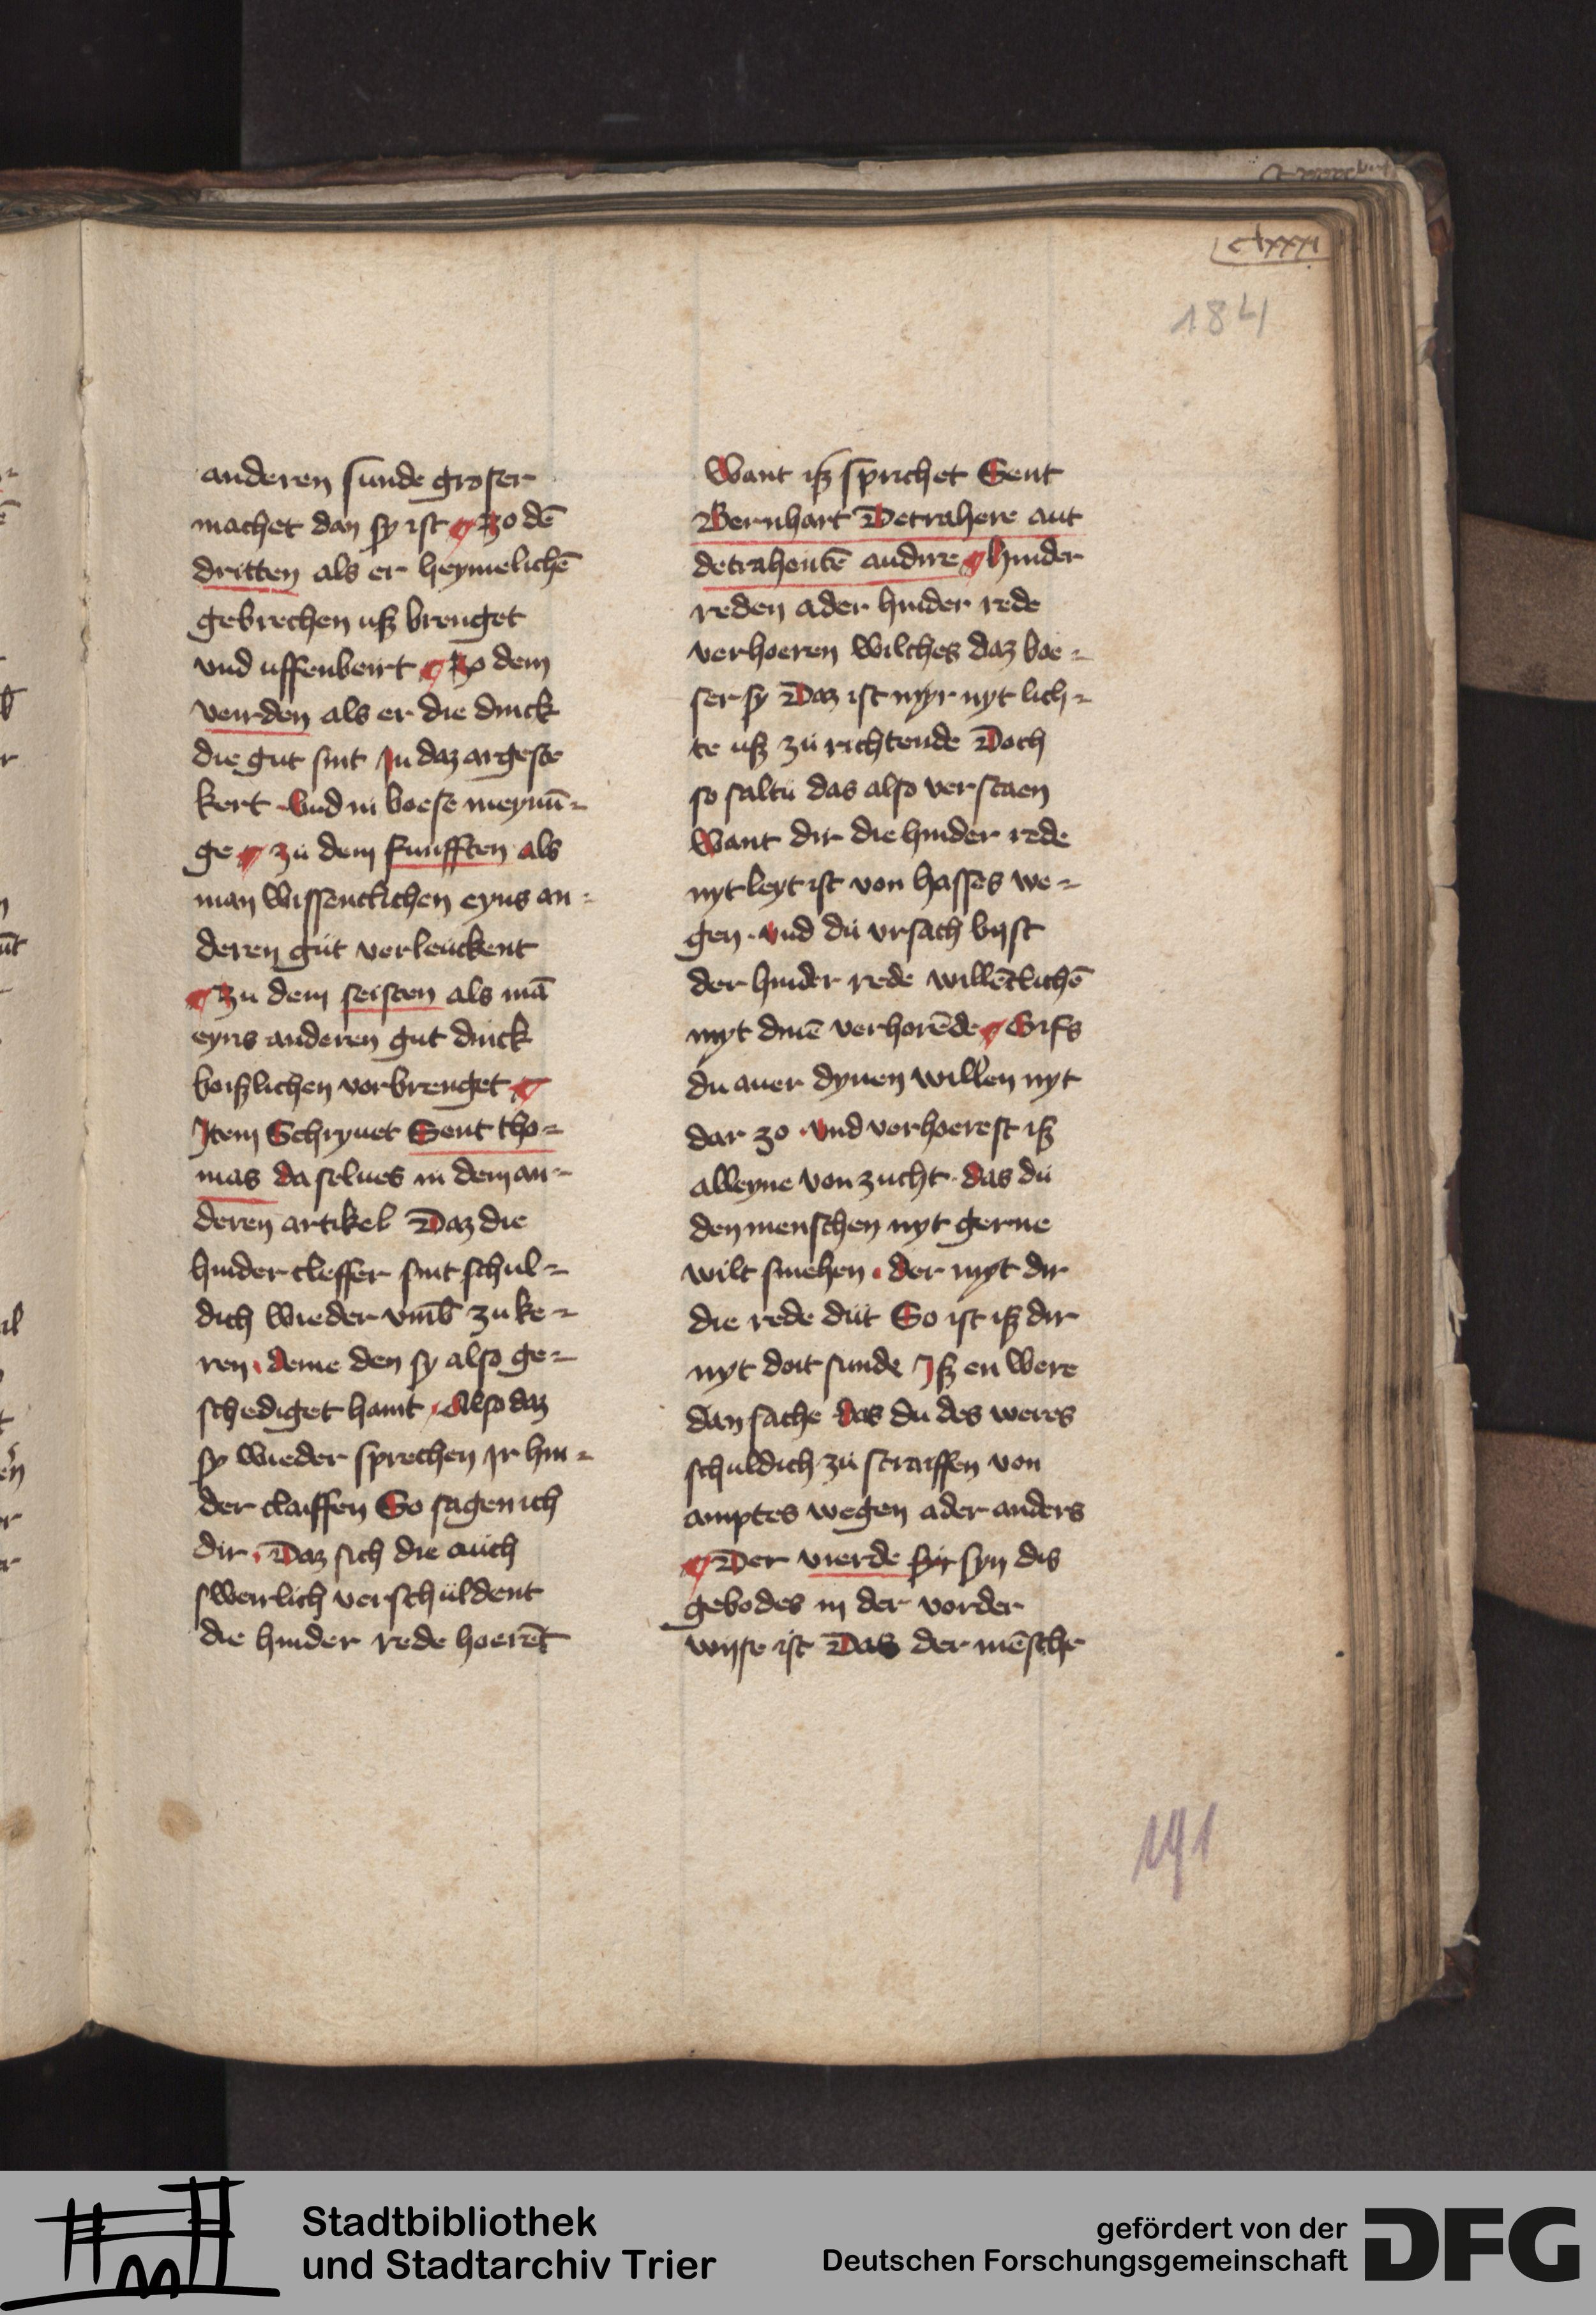 clxxxi
184
anderen sunde groser
machet dan sy ist ¶ Zo dē
dritten als er heymelichē
gebrechen uß brenget
vnd uffenbeirt ¶ Zo dem
veirden als er die dinck
die gut sint In daz argeste
kert Vnd in boese meynū-
ge ¶ zu dem funifften als
man wissentlichen eyns an-
deren gut verleuckent
¶ Zu dem seisten als mā
eyns anderen gut dinck
boißlichen vorbrenget ¶
Item Schryuet Sent tho-
mas da selues in dem an-
deren artikel Daz die
hinder cleffer sint schul-
dich wieder vmb zu ke-
ren · deme den sy also ge-
schediget haint · Also daz
sy wieder sprechen Ir hin-
der claiffen So sagen ich
dir · Daz sich die auch
sweirlich verschuldent
die hinder rede hoerēt
Want iß sprichet Sent
Bernhart Detrahere aut
detrahentē audire ¶ hinder
reden ader hinder rede
verhoeren wilches daz boe-
ser sy Daz ist myr nyt lich-
te uß zu richtende Doch
so saltu das also verstaen
Want dir die hinder rede
nyt leyt ist von hasses we-
gen · vnd du vrsach bijst
der hinder rede willētlichē
myt dinē verhorēde ¶ Gifs
du auer dynen willen nyt
dar zo · vnd verhoerest iß
alleyne von zucht · das du
den menschen nyt gerne
wilt smehen · der myt dir
die rede dut So ist iß dir
nyt doit sunde Iß en were
dan sache das du des weres
schuldich zu straiffen von
amptes wegen ader anders
¶ Der vierde syn dis
gebodes in der vorder
wijse ist Das der mēsche
191
Stadtbibliothek
und Stadtarchiv Trier
gefördert von der
Deutschen Forschungsgemeinschaft
DFG